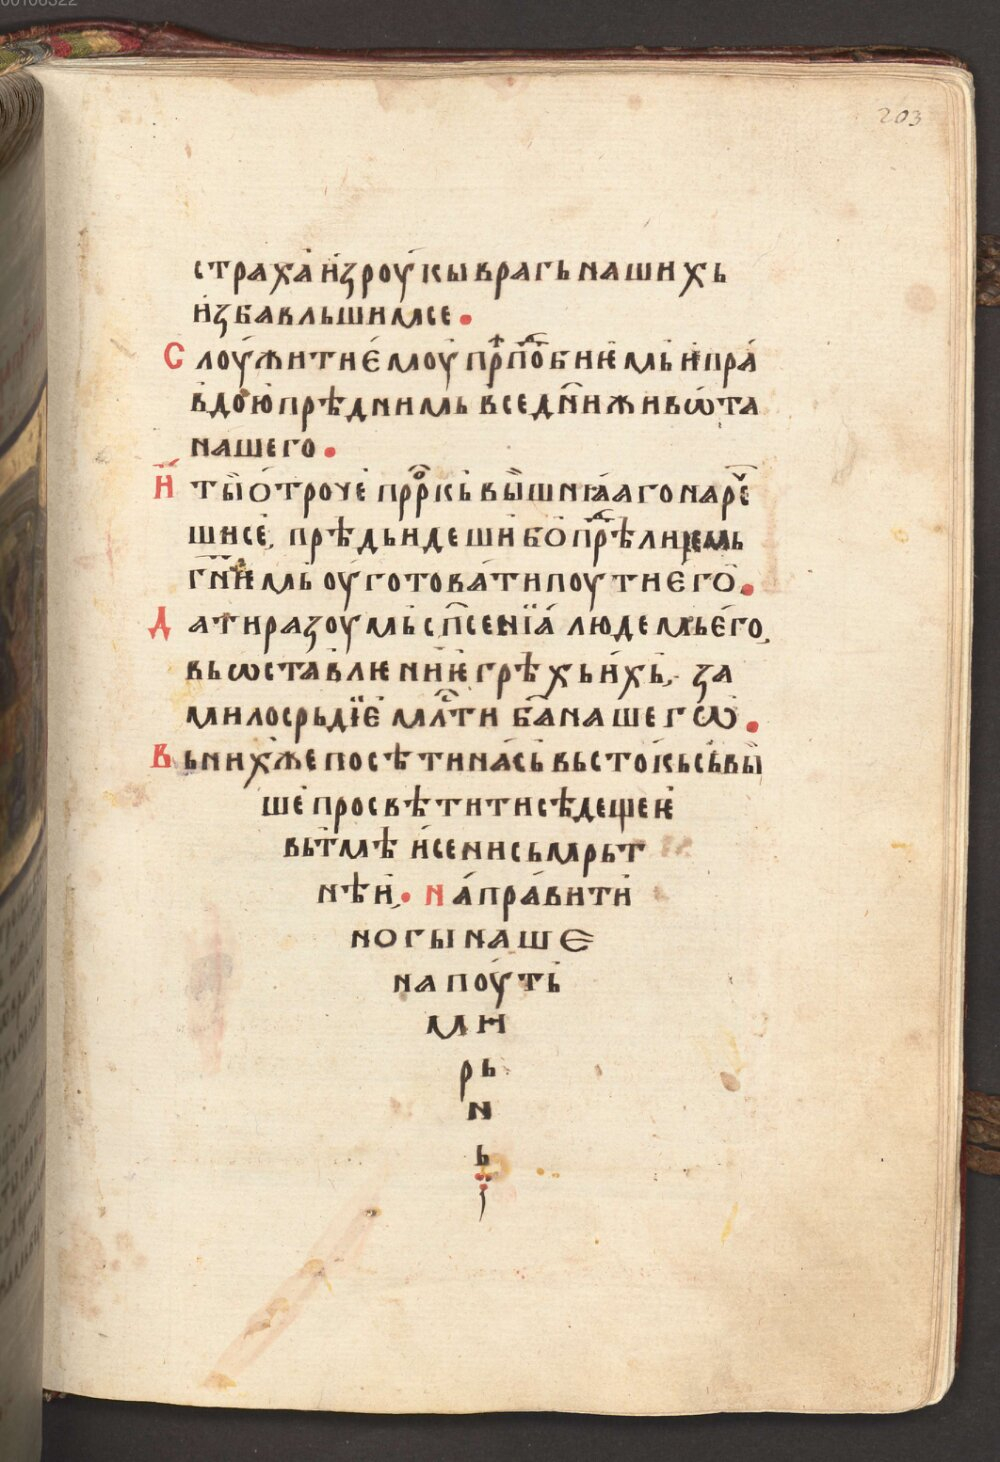 203
страха и҆зроу́кы врагь нашихь
и҆збавльшимсе.
Слоу́жити є҆моу прⷣпⷪбнїемь и҆ пра́
вдою прѣдь нимь все дн҃и живѡ́та
нашего.
И҆ ты̀ о҆троче прⷪр҃кь вы̀шнꙗ́аго наре́ⷱ
шисе, прѣдьидеши бо прⷣѣ лицемь
гн҃имь оу҆готова́ти поути є҆го̀.
Дати разоумь сп҃сенїа́ людемь є҆го,
вь ѡставлѥнїѥ грѣхь и҆хь, за
милосрьдїе́ млⷭ҇ти ба҃ нашегѡ̀.
Вьнихже посѣти на́сь вьстокь сьвы̀
ше просвѣтити сѣдещеѥ
вьтмѣ и҆ сени сьмрьт
нѣи, на́пра́вити
ногы наше
на поу́ть
ми
рь
н
ь